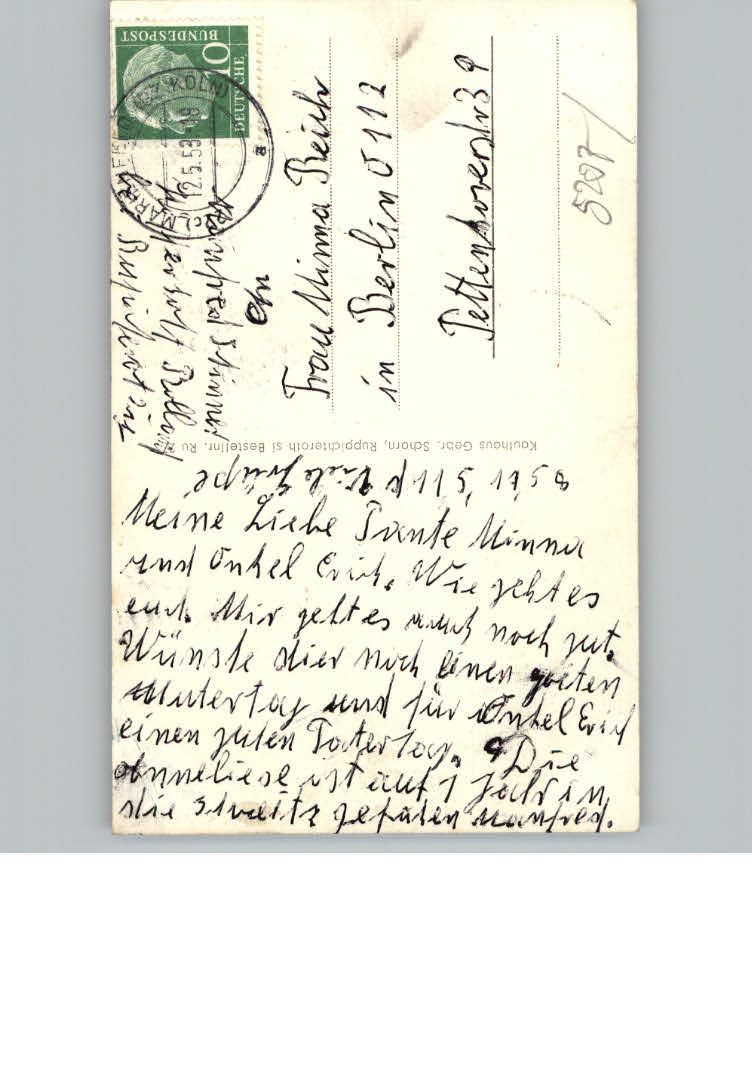 10
DEUTSCHE
BUNDESPOST
(BZ. KÖLN)
12.5.53
a
Manfred Stimner
Ruppichteroth
an
Frau Minna Reich
in Berlin O 112
Pettenkoverstr 39
5207
Kaufhaus Gebr. Schorn, Ruppichteroth si Bestellnr. Ru
Viele Grüße
Meine Liebe Tante Minna
und Onkel Erich. Wie geht es
euch. Mir geht es auch noch gut.
Wünste dier noch einen goeten
Mutertag und für Onkel Erich
einen guten Fatertag. Die
Anneliese ist auf 1 Jahr in
die Schweitz gefaren Manfred.